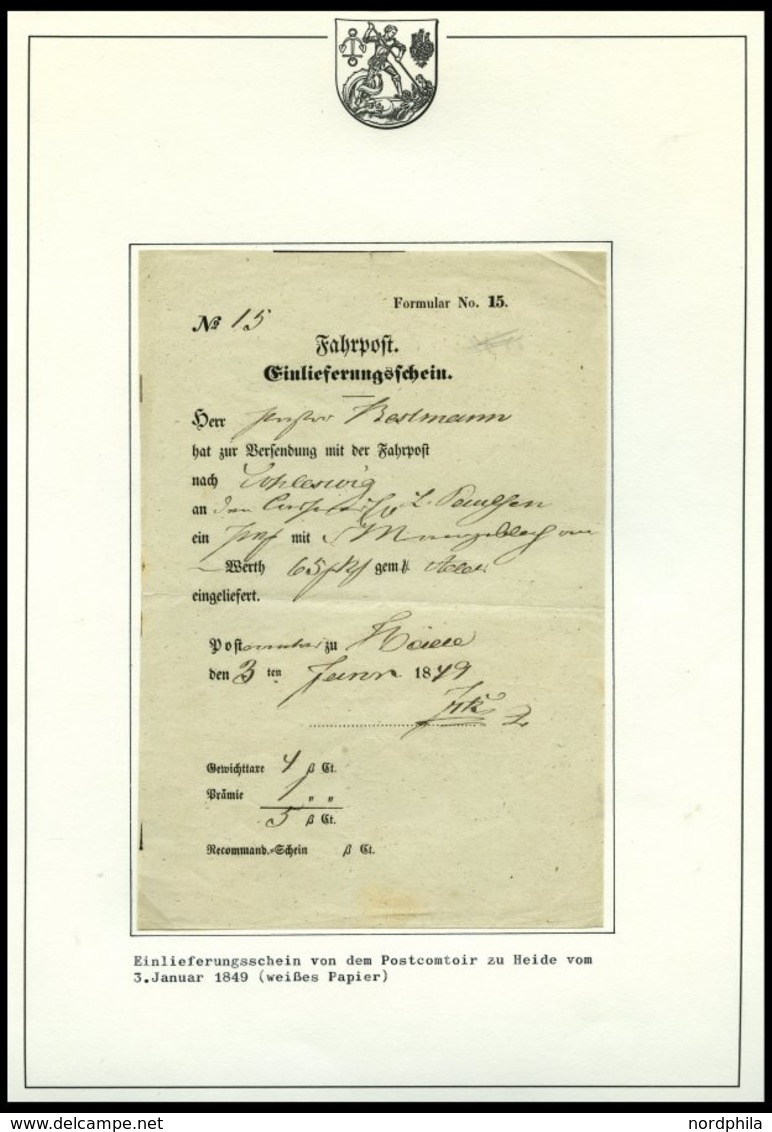 Formular No. 15.
№ 15
Fahrpost.
Einlieferungsschein.
Herr Bestmann
hat zur Versendung mit der Fahrpost
nach Schleswig
an den L. Paulsen
ein mit
Werth 65 gem.
eingeliefert.
Post zu Heide
den 3 ten Januar 1849
Gewichttaxe 4 ß Ct.
Prämie 1 " "
5 ß Ct.
Recommand.-Schein ß Ct.
Einlieferungsschein von dem Postcomtoir zu Heide vom
3.Januar 1849 (weißes Papier)
www.delcampe.net
nordphila